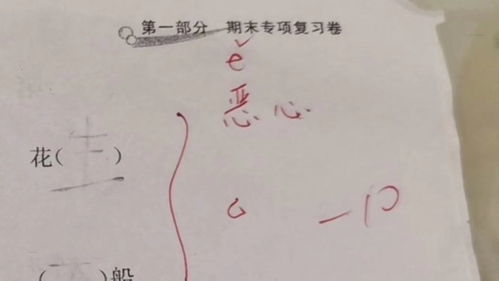 第一部分 期末专项复习卷
ě
恶心
花(生)
-10
( )船